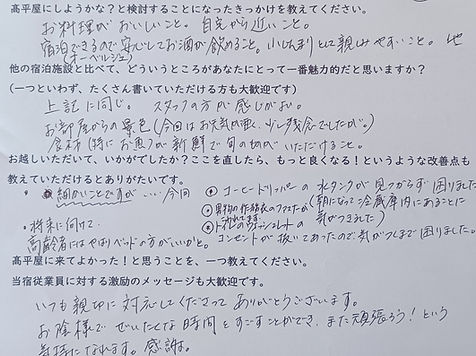 高平屋にしようかな?と検討することになったきっかけを教えてください。
お料理がおいしいこと。自宅から近いこと。
宿泊できるので安心してお酒が飲めること。小じんまりとして親しみやすいこと。
(オーベルジュ)
他の宿泊施設と比べて、どういうところがあなたにとって一番魅力的だと思いますか?
(一つといわず、たくさん書いていただける方も大歓迎です)
上記に同じ。 スタッフの方が感じがよい。
お部屋からの景色(今回はお天気が悪く、少し残念でしたが。)
食材(特にお魚)が新鮮で旬の物がいただけること。
お越しいただいて、いかがでしたか?ここを直したら、もっと良くなる!というような改善点も
教えていただけるとありがたいです。
・細かいことですが…今回 ・コーヒードリッパーの水タンクが見つからず困りました
(朝になって冷蔵庫内にあることに気がつきました)
・男物の作務衣のファスナーが
・将来に向けて ・トイレのウォシュレットの
高齢者にはやはりベッドの方がいいかと。 コンセントが抜いてあったので気がつくまで困りました。
高平屋に来てよかった!と思うことを、一つ教えてください。
当宿従業員に対する激励のメッセージも大歓迎です。
いつも親切に対応してくださってありがとうございます。
お陰様でぜいたくな時間をすごすことができ、また頑張ろう!という
気持になれます。感謝。